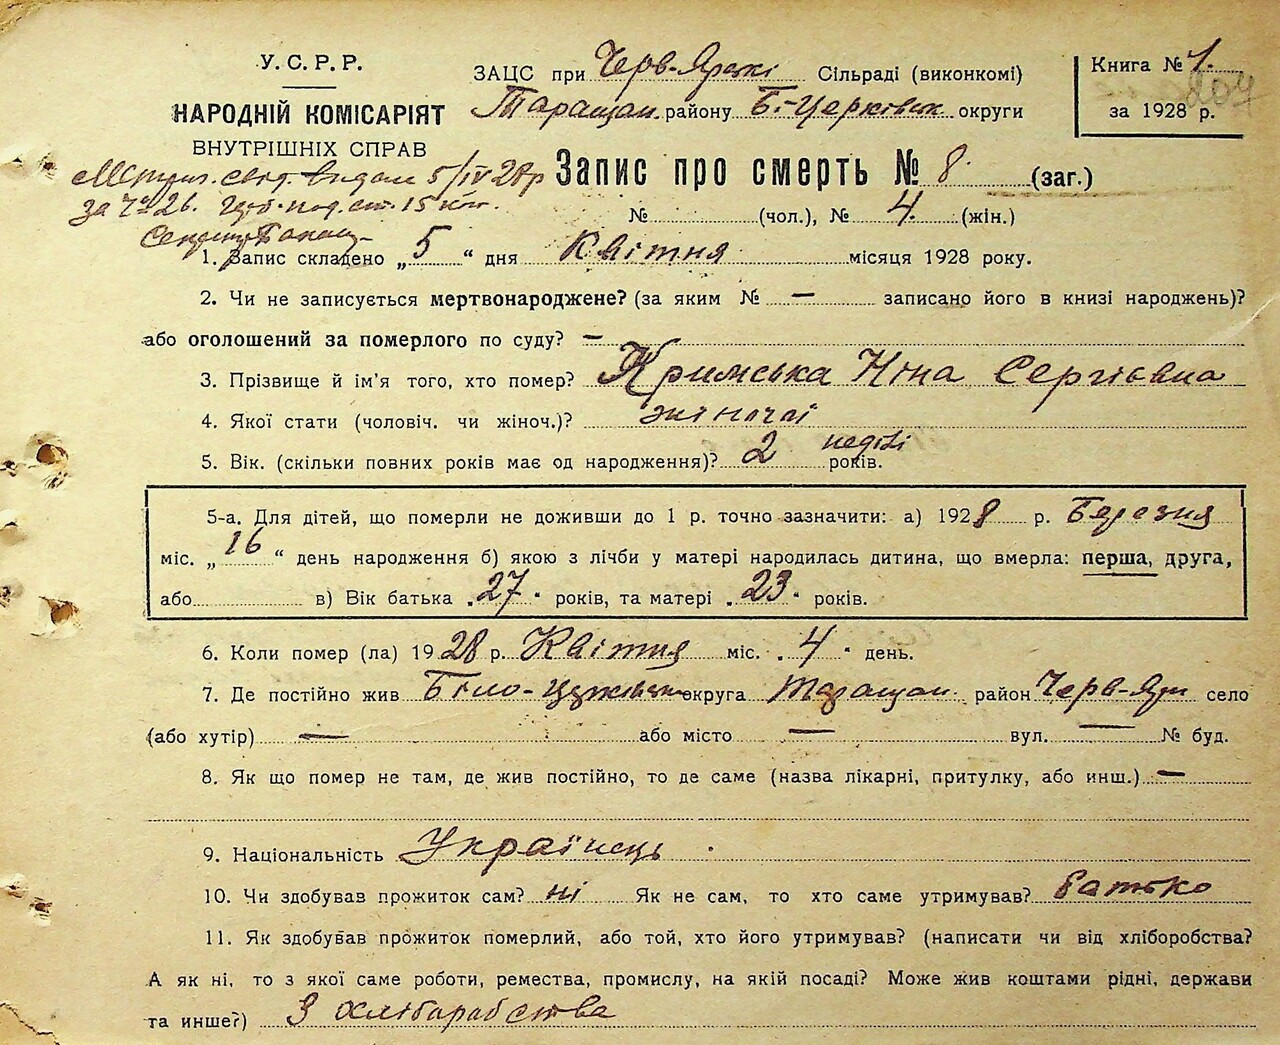 У. С. Р. Р.
НАРОДНІЙ КОМІСАРІЯТ
ВНУТРІШНІХ СПРАВ
ЗАЦС при Черв-Ярські Сільраді (виконкомі)
Таращан. району Б-Церківськ округи
Книга № 1.
за 1928 р.
204
видали 5/IV 28 р
за № 26. 15 коп.
Запис про смерть № 8. (заг.)
№ (чол.), № 4. (жін.)
1. Запис складено „5“ дня Квітня місяця 1928 року.
2. Чи не записується мертвонароджене? (за яким № — записано його в книзі народжень)?
або оголошений за померлого по суду? —
3. Прізвище й ім'я того, хто помер? Кримська Ніна Сергієвна
4. Якої стати (чоловіч. чи жіноч.)? жіночаї
5. Вік. (скільки повних років має од народження)? 2 неділі років.
5-а. Для дітей, що померли не доживши до 1 р. точно зазначити: а) 1928 р. Березня
міс. „16“ день народження б) якою з лічби у матері народилась дитина, що вмерла: перша, друга,
або в) Вік батька „27“ років, та матері „23“ років.
6. Коли помер (ла) 1928 р. Квітня міс. „4“ день.
7. Де постійно жив Біло-Церківськ округа Таращан. район Черв-Яр село
(або хутір) — або місто — вул. — № буд.
8. Як що помер не там, де жив постійно, то де саме (назва лікарні, притулку, або инш.) —
9. Національність Українець
10. Чи здобував прожиток сам? ні Як не сам, то хто саме утримував? батько
11. Як здобував прожиток померлий, або той, хто його утримував? (написати чи від хліборобства?
А як ні, то з якої саме роботи, ремества, промислу, на якій посаді? Може жив коштами рідні, держави
та инше?) З хлібарабства